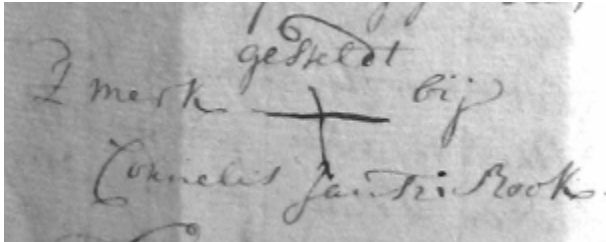 gestelt
T merk bij
Cornelis Jansz: Rook.